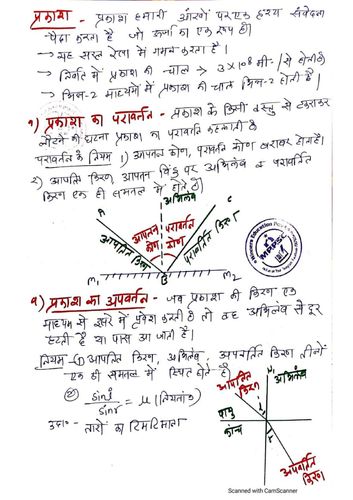 प्रकाश :- प्रकाश हमारी आँखों पर एक दृश्य संवेदना
पैदा करता है जो ऊर्जा का एक रूप है।
- यह सरल रेखा में गमन करता है।
- निर्वात में प्रकाश की चाल → 3×10⁸ मी०/से होती है
- भिन्न-2 माध्यमों में प्रकाश की चाल भिन्न-2 होती है।
1) प्रकाश का परावर्तन - प्रकाश के किसी वस्तु से टकराकर
लौटने की घटना प्रकाश का परावर्तन कहलाती है
परावर्तन के नियम 1) आपतन कोण, परावर्तन कोण बराबर होता है।
2) आपतित किरण, आपतन बिंदु पर अभिलंब व परावर्तित
किरण एक ही समतल में होते हैं।
अभिलंब
A
C
आपतित किरण
आपतन कोण
परावर्तन कोण
परावर्तित किरण
M₁
B
M₂
MPPSC
2) प्रकाश का अपवर्तन - जब प्रकाश की किरण एक
माध्यम से दूसरे में प्रवेश करती है तो वह अभिलंब से दूर
हटती है या पास आ जाती है।
नियम - ① आपतित किरण, अभिलंब, अपवर्तित किरण तीनों
एक ही समतल में स्थित होते हैं।
② sin i / sin r = μ (नियतांक)
उदा०- तारों का टिमटिमाना
आपतित किरण
अभिलंब
i
वायु
कांच
r
अपवर्तित किरण
Scanned with CamScanner